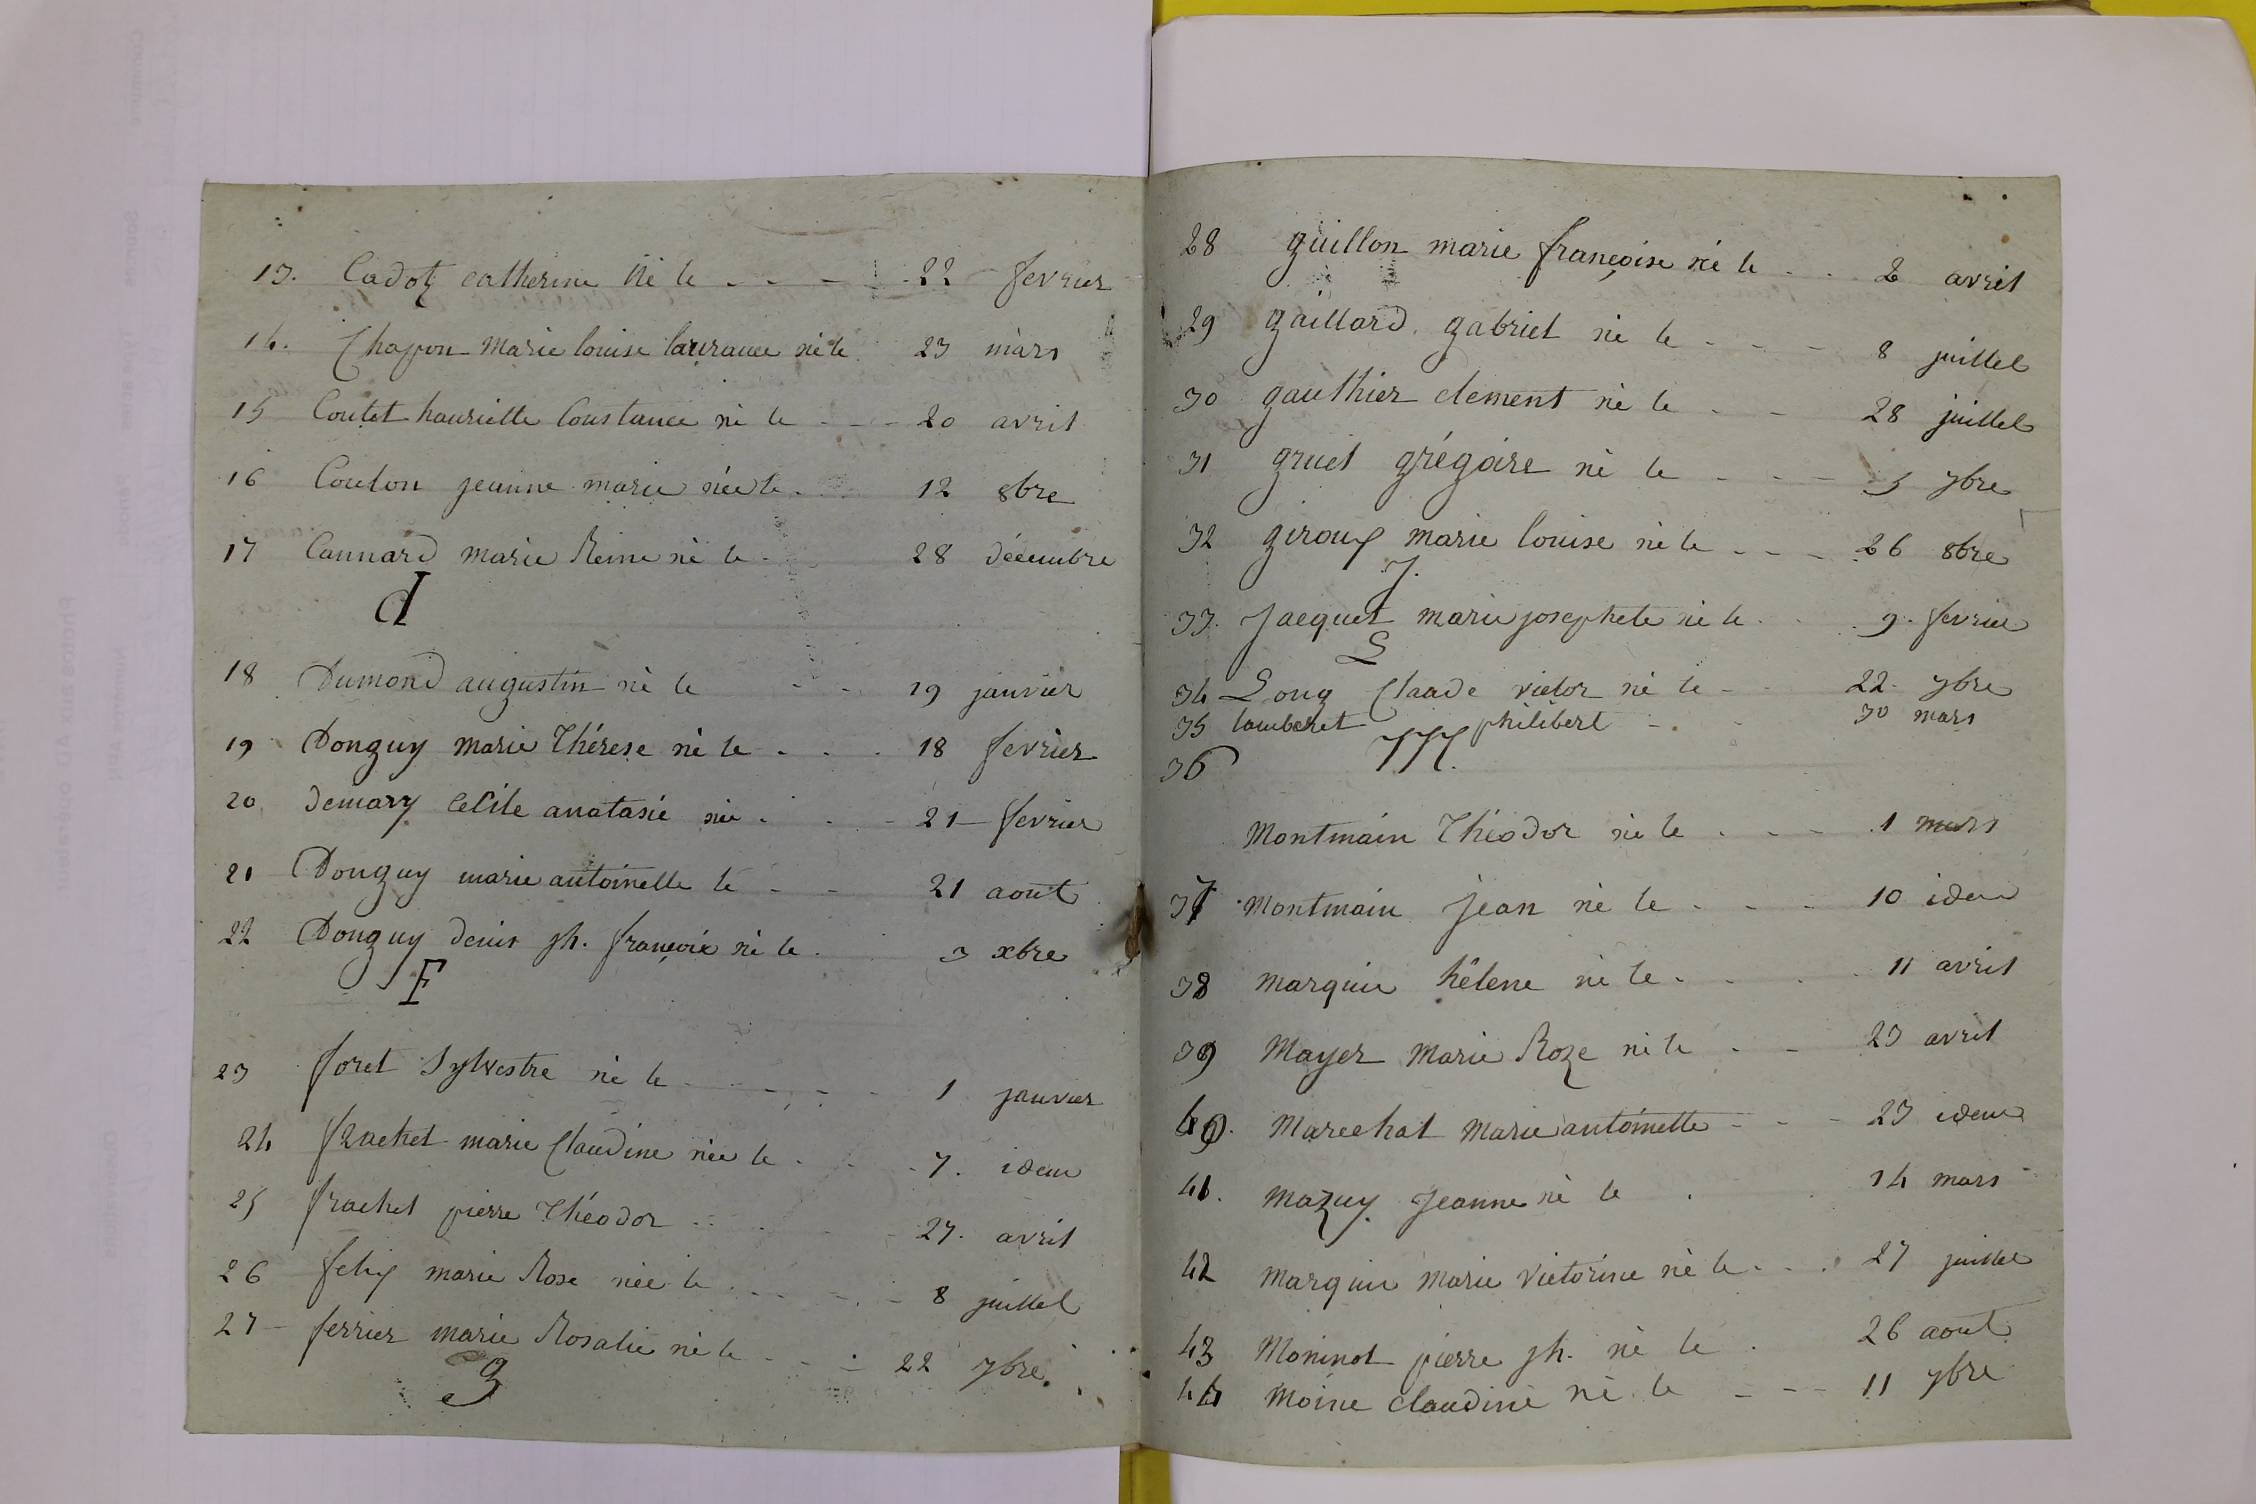 13. Cadoz catherine né le - - - 22 fevrier
14. Chapon Marie louise laurance né le 23 mars
15 Coulet hauriette Constance né le - - - 20 avril
16 Coulon jeanne marie née le . 12 8bre
17 Cannard marie Reine né le - 28 décembre
d
18 Dumond augustin né le - - 19 janvier
19 Donguy marie Thérese né le - - - 18 fevrier
20 demary Cécile anatasié née - - - 21 fevrier
21 Donguy marie antoinelle le - - 21 aout
22 Donguy denis jh. françoix né le . 3 xbre
F
23 foret Sylvestre né le - - - - 1 janvier
24 frachet marie Claudine née le . . . 7. idem
25 frachet pierre Théodor - - - 27. avril
26 felix marie Rose née le . - - - 8 juillet
27 ferrier marie Rosalie né le - - - 22 7bre.
g
28 guillon marie françoise né le - - 2 avril
29 gaillard gabriel né le - - - 8 juillet
30 gauthier clement né le - - 28 juillet
31 gruet grégoire né le - - - 5 7bre
32 giroux marie louise né le - - - 26 8bre
J.
33. Jacquet marie josephete né le . . 9. fevrier
L
34 Long Claude victor né le - - 22 7bre
35 lamberet philibert - - 30 mars
M.
36
Montmain Théodor né le - - - 1 mars
37 Montmain jean né le - - - 10 idem
38 marquie hélene né le - - - 11 avril
39 Mayer Marie Roze né le - - 23 avril
40. Marechal Marie antoinette - - - 23 idem
41. Mazuy Jeanne né le . . 14 mars
42 marquie Marie Victorine né le - - . 27 juillet
43 Moninot pierre jh. né le . 26 aout
44 Moine claudine né le - - - 11 7bre